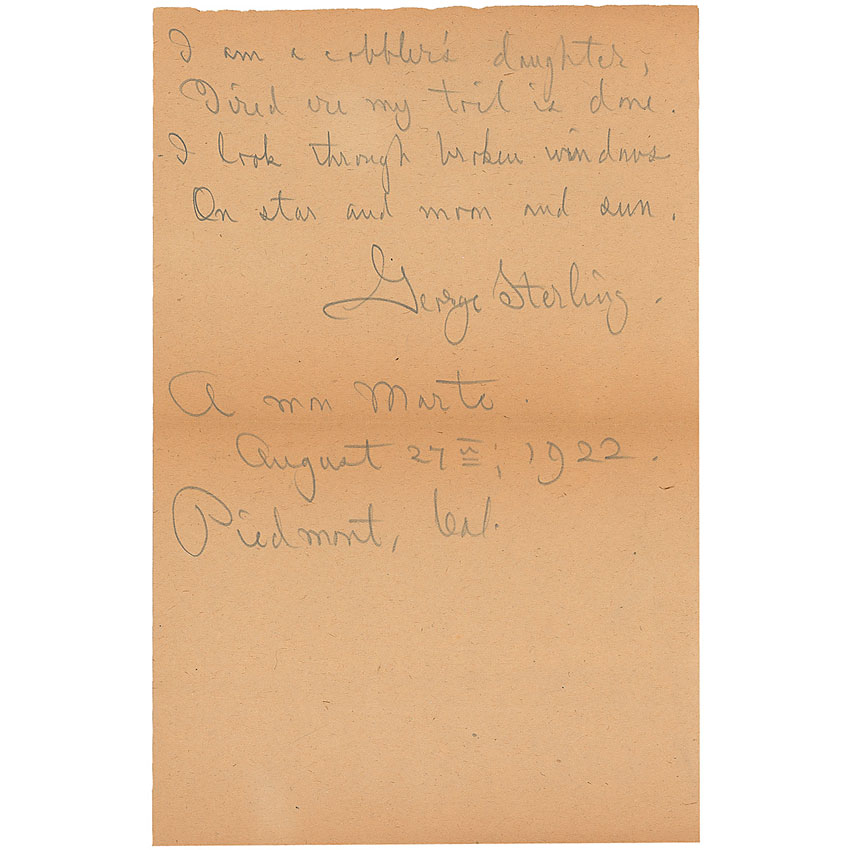 I am a cobbler's daughter,
Tired ere my toil is done.
I look through broken windows
On star and moon and sun.
George Sterling.
A mon Marte.
August 27th, 1922.
Piedmont, Cal.